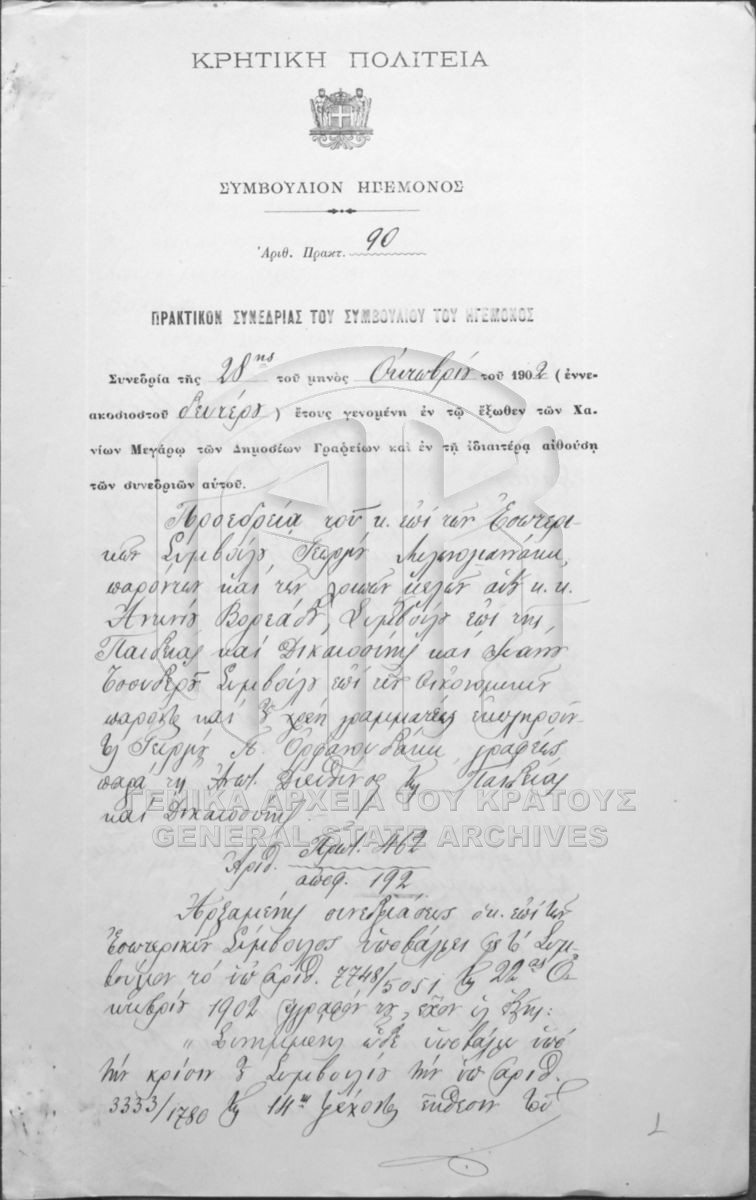 ΚΡΗΤΙΚΗ ΠΟΛΙΤΕΙΑ
ΣΥΜΒΟΥΛΙΟΝ ΗΓΕΜΟΝΟΣ
Ἀριθ. Πρακτ. 90
ΠΡΑΚΤΙΚΟΝ ΣΥΝΕΔΡΙΑΣ ΤΟΥ ΣΥΜΒΟΥΛΙΟΥ ΤΟΥ ΗΓΕΜΟΝΟΣ
Συνεδρία τῆς 28ης τοῦ μηνὸς Ὀκτωβρίου τοῦ 1902 (ἐννε-
ακοσιοστοῦ δευτέρου) ἔτους γενομένη ἐν τῷ ἔξωθεν τῶν Χα-
νίων Μεγάρῳ τῶν Δημοσίων Γραφείων καὶ ἐν τῇ ἰδιαιτέρᾳ αἰθούσῃ
τῶν συνεδριῶν αὐτοῦ.
Προεδρείᾳ τοῦ κ. ἐπὶ τῶν Ἐσωτερι-
κῶν Συμβούλου Γεωργίου Μυλωνογιαννάκη,
παρόντων καὶ τῶν λοιπῶν μελῶν αὐτοῦ κ. κ.
Ἀντωνίου Βορεάδου, Συμβούλου ἐπὶ τῆς
Παιδείας καὶ Δικαιοσύνης καὶ Ἰωάννου
Τσουδεροῦ Συμβούλου ἐπὶ τῶν Οἰκονομικῶν
παρόντος καὶ τοῦ χρέη γραμματέως ἐκπληροῦν-
τος Γεωργίου Ν. Ὀρφανουδάκη, γραφέως
παρὰ τῇ Ἀνωτ. Διευθύνσει τῆς Παιδείας
καὶ Δικαιοσύνης.
ΓΕΝΙΚΑ ΑΡΧΕΙΑ ΤΟΥ ΚΡΑΤΟΥΣ
GENERAL STATE ARCHIVES
Ἀριθ. Πρωτ. 462
ἀποφ. 192
Ἀρξαμένης συνεδριάσεως ὁ κ. ἐπὶ τῶν
Ἐσωτερικῶν Σύμβουλος ὑποβάλλει εἰς τὸ Συμ-
βούλιον τὸ ὑπ' ἀριθ. 7748/5051 τῆς 22ας Ὀ-
κτωβρίου 1902 ἔγγραφόν του, ἔχον ὡς ἑξῆς:
"Συνημμένως ὧδε ὑποβάλλω ὑπὸ
τὴν κρίσιν τοῦ Συμβουλίου τὴν ὑπ' ἀριθ.
3333/1780 τῆς 14ης τρέχοντος ἔκθεσιν τοῦ